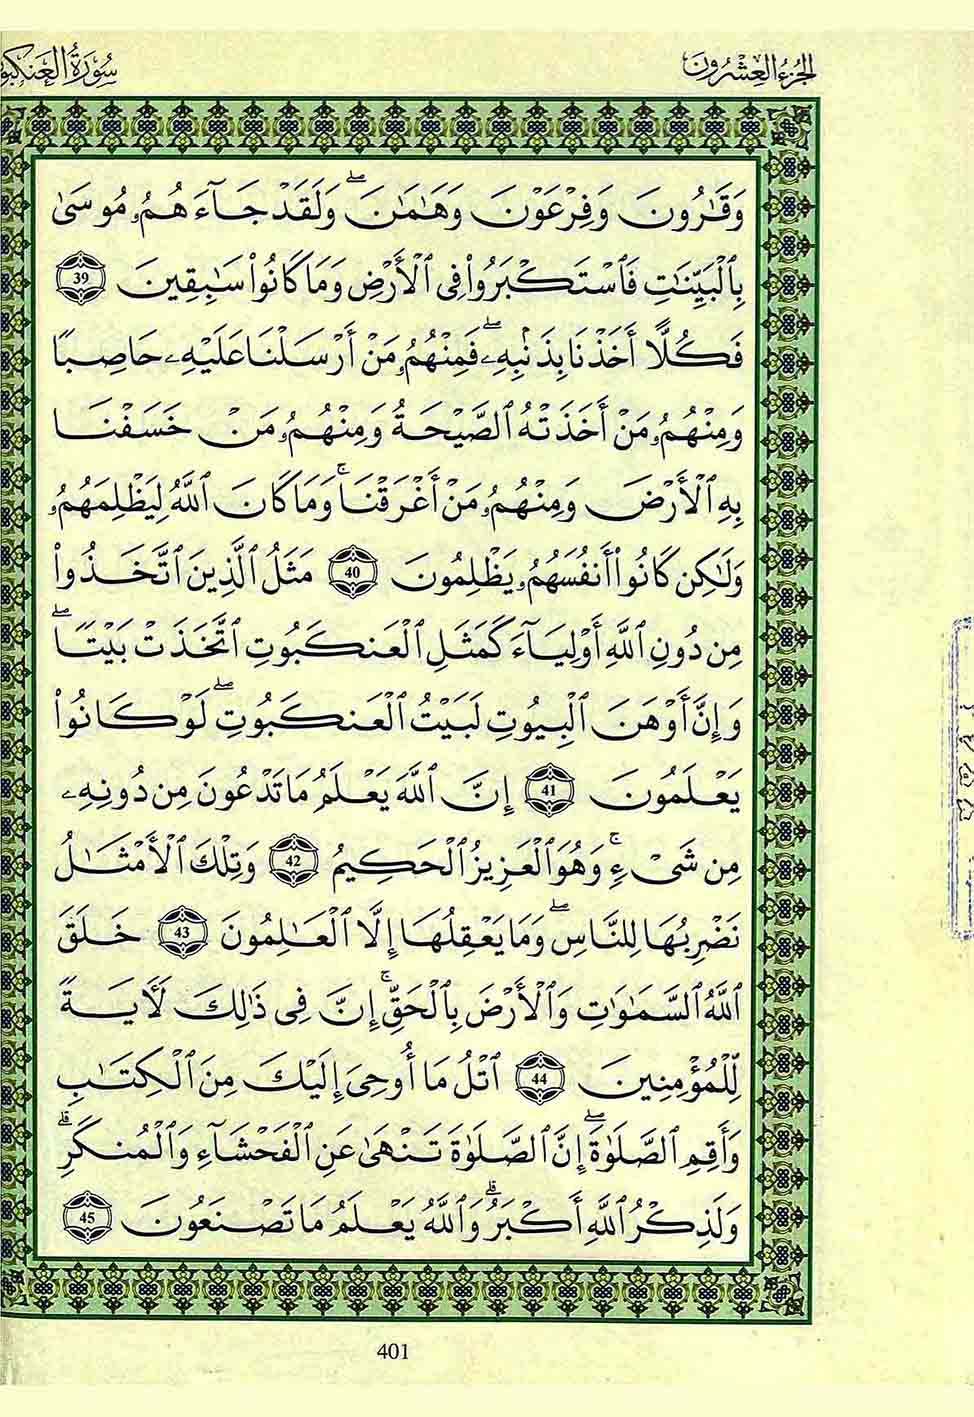 الجزء العشرون
سورة العنكبو
وَقَٰرُونَ وَفِرْعَوْنَ وَهَٰمَٰنَ ۖ وَلَقَدْ جَآءَهُمُۥ مُوسَىٰ
بِالْبَيِّنَٰتِ فَاسْتَكْبَرُوا۟ فِى اَ۬لْأَرْضِ وَمَا كَانُوا۟ سَٰبِقِينَ 39
فَكُلًّا أَخَذْنَا بِذَنۢبِهِۦ ۖ فَمِنْهُمُۥ مَنْ أَرْسَلْنَا عَلَيْهِۦ حَاصِبًا
وَمِنْهُمُۥ مَنْ أَخَذَتْهُ الصَّيْحَةُ وَمِنْهُمُۥ مَنْ خَسَفْنَا
بِهِ الْأَرْضَ وَمِنْهُمُۥ مَنْ أَغْرَقْنَا ۚ وَمَا كَانَ اللَّهُ لِيَظْلِمَهُمُۥ
وَلَٰكِن كَانُوا۟ أَنفُسَهُمُۥ يَظْلِمُونَ 40 مَثَلُ الَّذِينَ اتَّخَذُوا۟
مِن دُونِ اللَّهِ أَوْلِيَآءَ كَمَثَلِ الْعَنكَبُوتِ اتَّخَذَتْ بَيْتًا ۖ
وَإِنَّ أَوْهَنَ الْبِيُوتِ لَبَيْتُ الْعَنكَبُوتِ ۖ لَوْ كَانُوا۟
يَعْلَمُونَ 41 إِنَّ اللَّهَ يَعْلَمُ مَا تَدْعُونَ مِن دُونِهِۦ
مِن شَىْءٍ ۚ وَهُوَ الْعَزِيزُ الْحَكِيمُ 42 وَتِلْكَ الْأَمْثَٰلُ
نَضْرِبُهَا لِلنَّاسِ ۖ وَمَا يَعْقِلُهَا إِلَّا الْعَٰلِمُونَ 43 خَلَقَ
اللَّهُ السَّمَٰوَٰتِ وَالْأَرْضَ بِالْحَقِّ ۚ إِنَّ فِى ذَٰلِكَ لَأٓيَةً
لِّلْمُؤْمِنِينَ 44 اتْلُ مَا أُوحِىَ إِلَيْكَ مِنَ الْكِتَٰبِ
وَأَقِمِ الصَّلَوٰةَ ۖ إِنَّ الصَّلَوٰةَ تَنْهَىٰ عَنِ الْفَحْشَآءِ وَالْمُنكَرِ ۗ
وَلَذِكْرُ اللَّهِ أَكْبَرُ ۗ وَاللَّهُ يَعْلَمُ مَا تَصْنَعُونَ 45
401